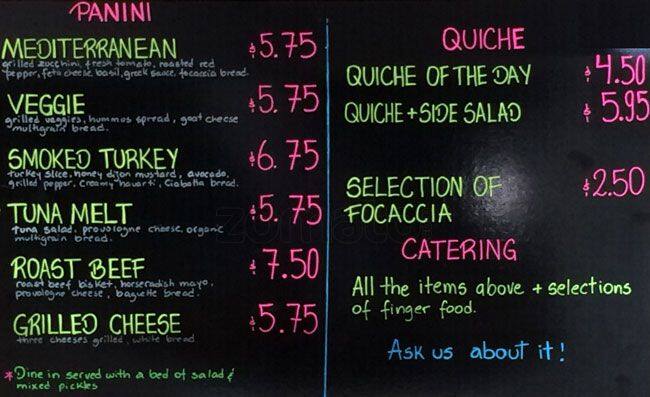 PANINI
MEDITERRANEAN $5.75
grilled zucchini, fresh tomato, roasted red
pepper, feta cheese, basil, greek sauce, focaccia bread.
VEGGIE $5.75
grilled veggies, hummos spread, goat cheese
multigrain bread.
SMOKED TURKEY $6.75
turkey slice, honey dijon mustard, avocado,
grilled pepper, creamy havarti, Ciabatta bread.
TUNA MELT $5.75
tuna salad, provologne cheese, organic
multigrain bread.
ROAST BEEF $7.50
roast beef bisket, horseradish mayo,
provologne cheese, baguette bread.
GRILLED CHEESE $5.75
three cheeses grilled, white bread
*Dine in served with a bed of salad &
mixed pickles
QUICHE
QUICHE OF THE DAY $4.50
QUICHE + SIDE SALAD $5.95
SELECTION OF $2.50
FOCACCIA
CATERING
All the items above + selections
of finger food.
Ask us about it!